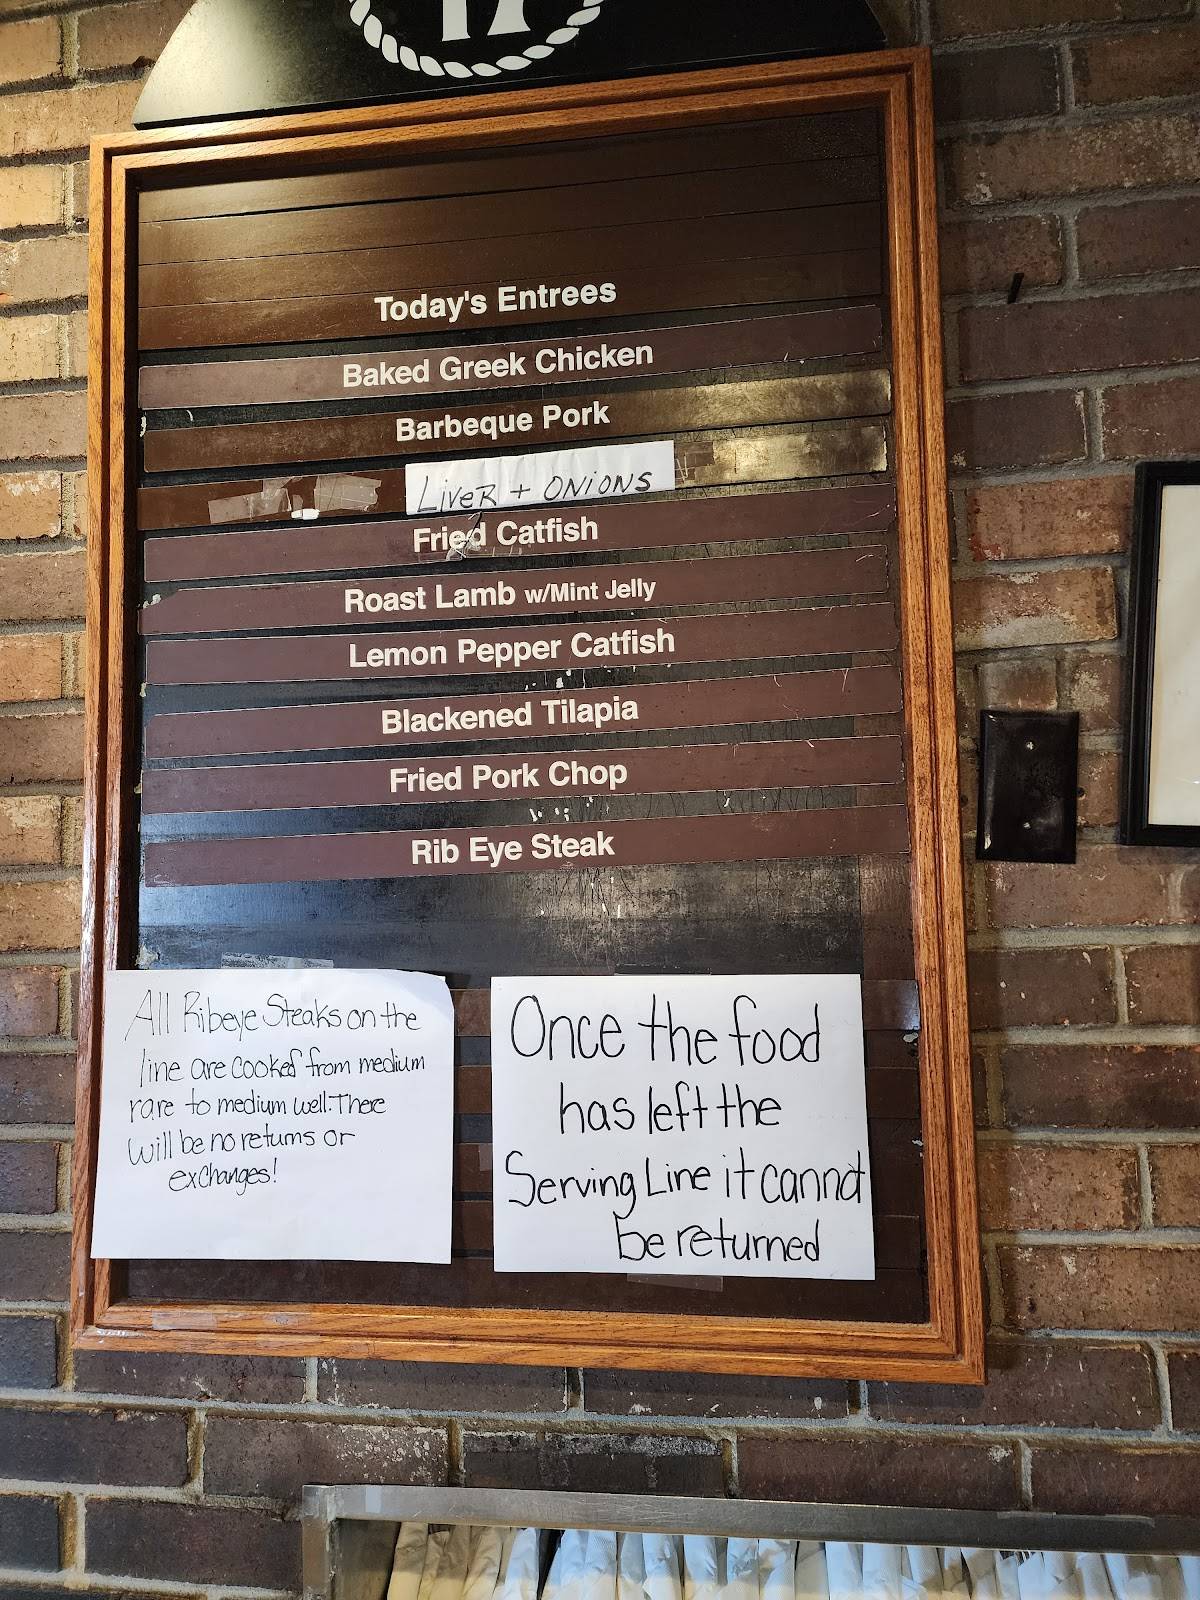 17
Today's Entrees
Baked Greek Chicken
Barbeque Pork
LiveR + ONiONS
Fried Catfish
Roast Lamb w/Mint Jelly
Lemon Pepper Catfish
Blackened Tilapia
Fried Pork Chop
Rib Eye Steak
All Ribeye Steaks on the
line are cooked from medium
rare to medium well. There
will be no returns or
exchanges!
Once the food
has left the
Serving Line it cannot
be returned